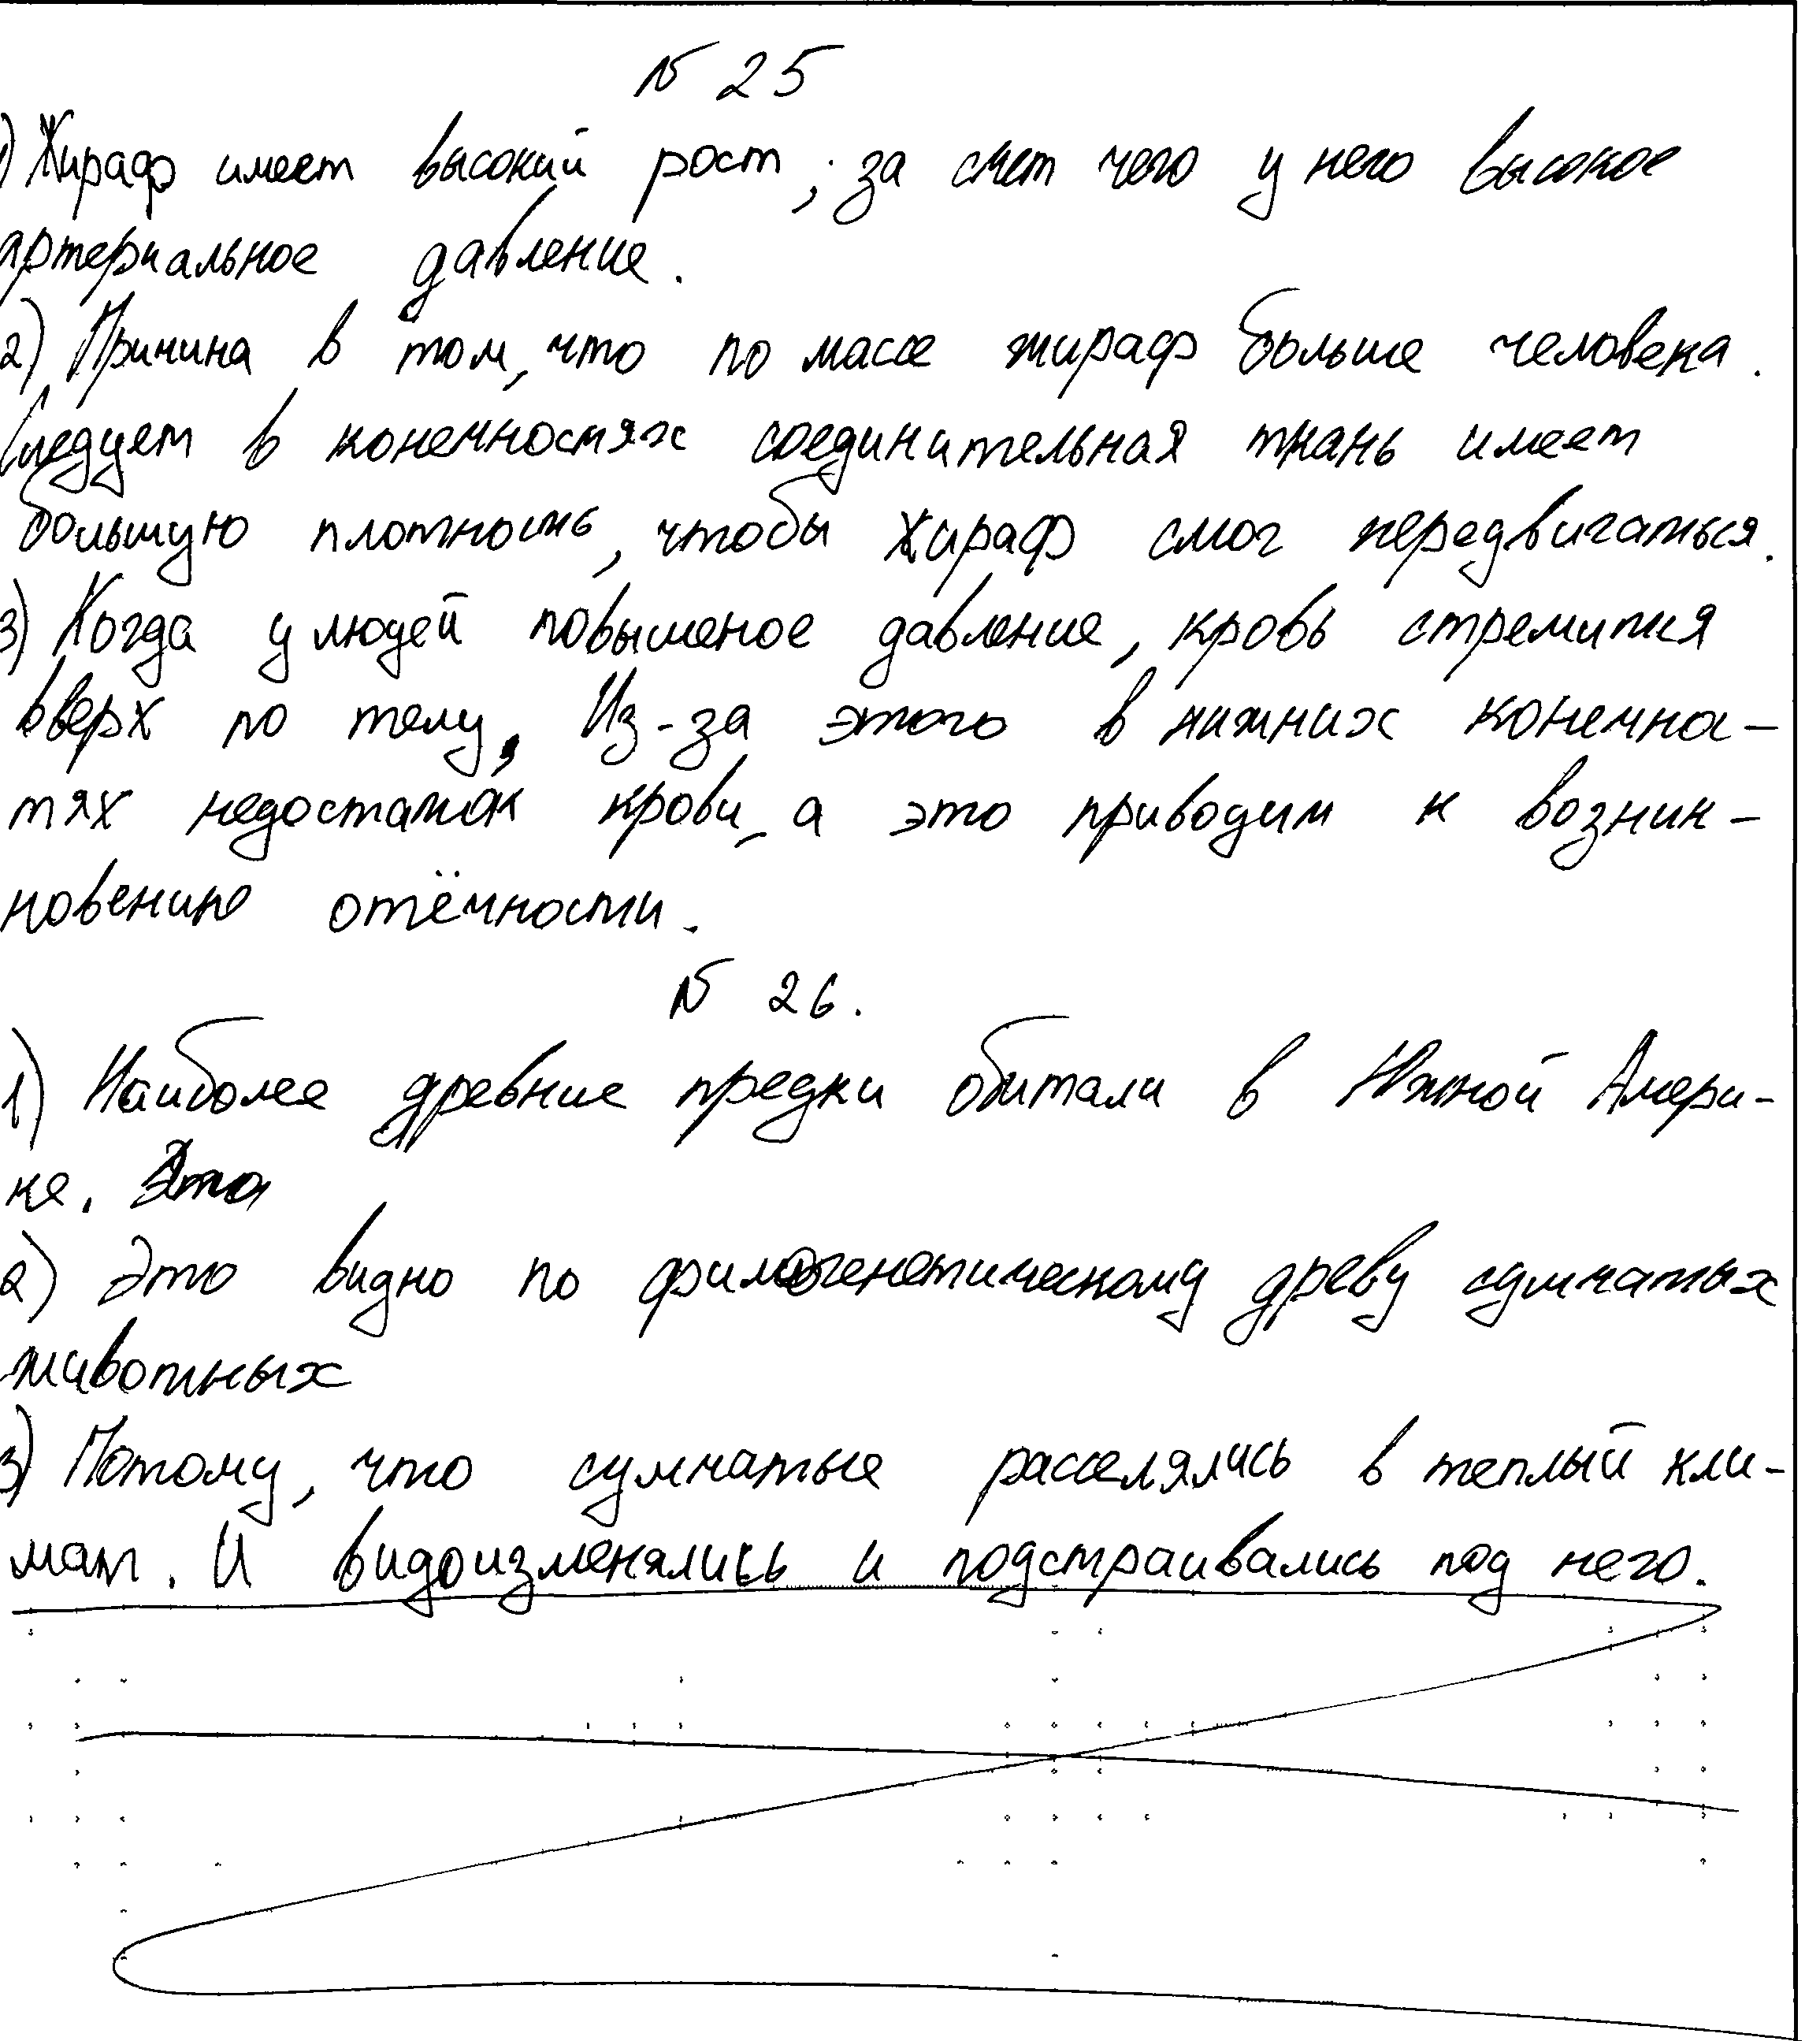 № 25
1) Жираф имеет высокий рост, за счет чего у него высокое
артериальное давление.
2) Причина в том, что по массе жираф больше человека.
Следует в конечностях соединительная ткань имеет
большую плотность, чтобы жираф смог передвигаться.
3) Когда у людей повышеное давление, кровь стремится
вверх по телу. Из-за этого в нижних конечно-
тях недостаток крови, а это приводит к возник-
новению отёчности.
№ 26.
1) Наиболее древние предки обитали в Южной Амери-
ке. Это
2) Это видно по филогенетическому древу сумчатых
животных
3) Потому, что сумчатые расселялись в теплый кли-
мат. И видоизменялись и подстраивались под него.